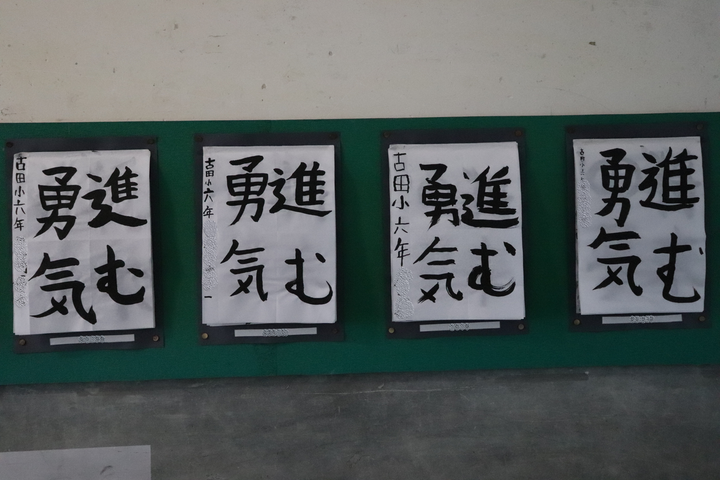 進む
勇気
古田小六年
進む
勇気
古田小六年
進む
勇気
古田小六年
進む
勇気